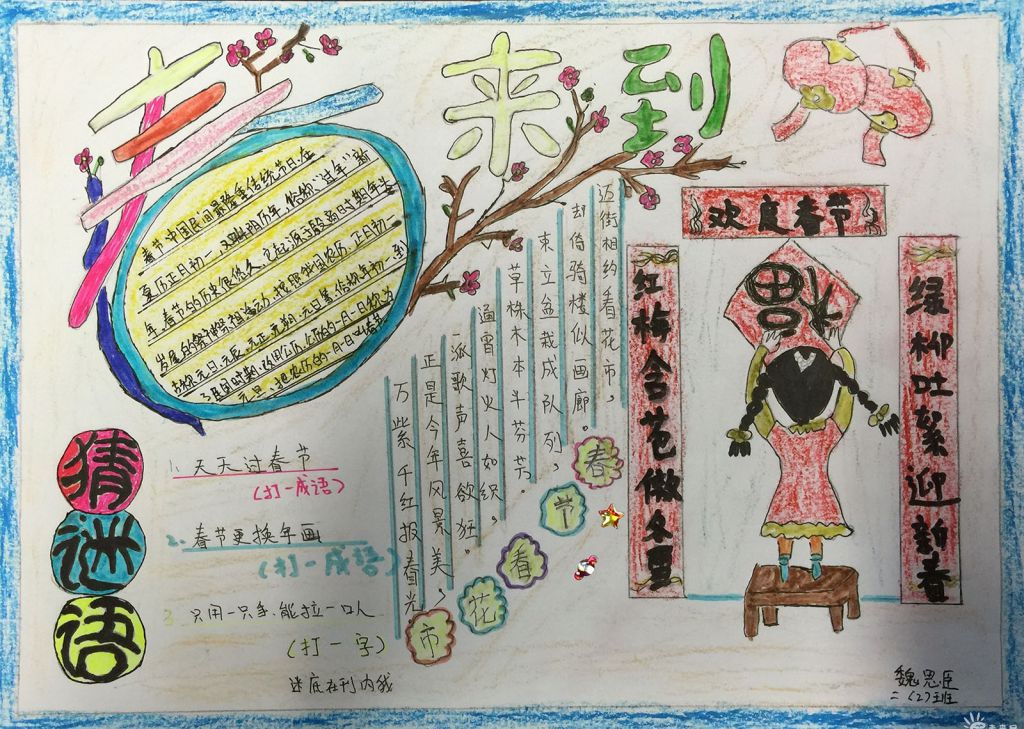 春来到
春节中国民间最隆重传统节日.在
夏历正月初一,又叫阴历年,俗称“过年”新
年,春节的历史很悠久,它起源于殷商时期年头
岁尾的祭神祭祖活动,按照我国农历,正月初一
古称元日、元辰、元正、元朔、元旦等,俗称年初一,到
了民国时期,改用公历,公历的一月一日称为
元旦,把农历的一月一日叫春节
欢度春节
红梅含苞傲冬夏
绿柳吐絮迎新春
福
迈街相约看花市,
却倚骑楼似画廊。
束立盆栽成队列,
草株木本斗芬芳。
通宵灯火人如织,
一派歌声喜欲狂。
正是今年风景美,
万紫千红报春光
春节看花市
猜谜语
1、天天过春节
(打一成语)
2、春节更换年画
(打一成语)
3、只用一只手、能拉一口人
(打一字)
迷底在刊内我
魏思臣
二(2)班